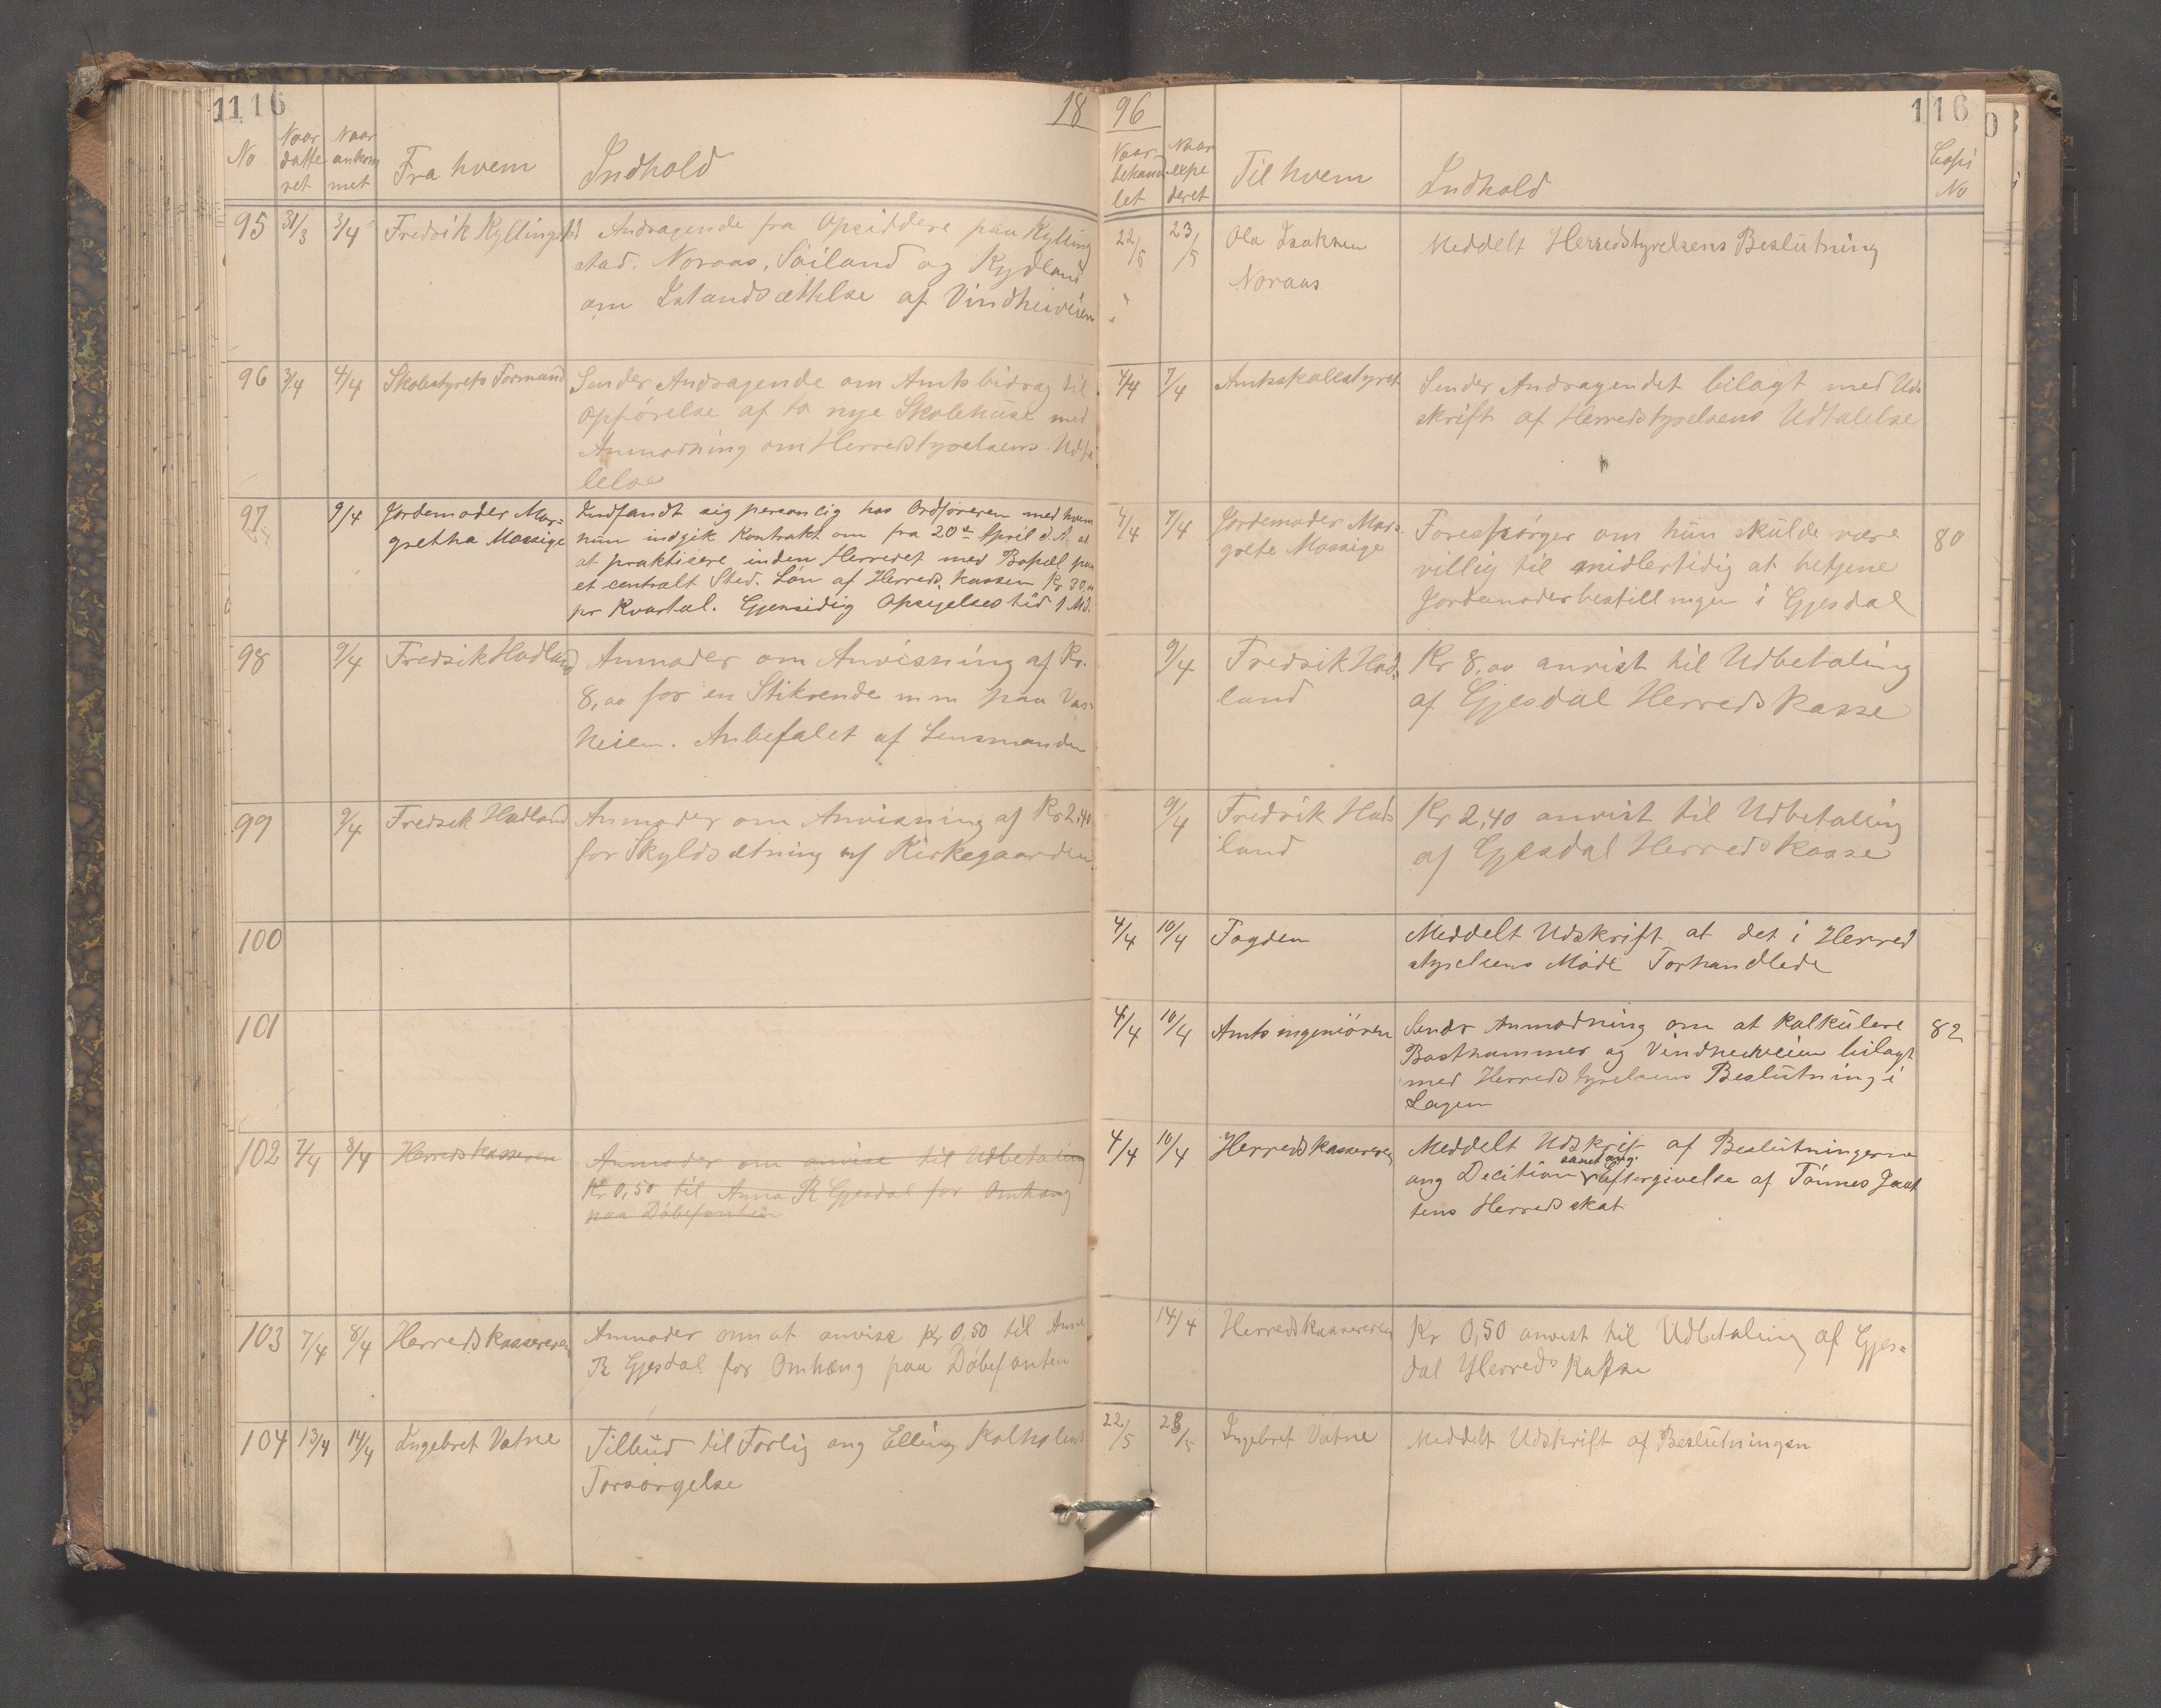 1116
18
No
Naar datte ret
Naar ankom met
Fra hvem
Indhold
95 31/3 3/4 Fredrik Kyllingstd
Andragende fra Opsiddere paa Kylling
stad. Noraas, Söiland og Kydland
om Istandsættelse af Vindheiveien
96 3/4 4/4 Skolestyrets Formand
Sender Andragende om Amtsbidrag til
Opförelse af to nye Skolehuse med
Anmodning om Herredstyrelsens Udta
lelse
97 9/4 Jordemoder Mar=
gretha Mossige
Indfandt sig personlig hos Ordföreren med hvem
hun indgik Kontrakt om fra 20de April d. A. at
at praktisere inden Herredet med Bopæl paa
et centralt Sted. Lön af Herredskassen Kr 30,00
pr Kvartal. Gjensidig Opsigelses tid 1 Md.
98 9/4 Fredrik Hadland
Anmoder om Anvisning af Kr.
8,00 for en Stikrende m m paa Vas-
heien. Anbefalet af Lensmanden
99 9/4 Fredrik Hadland
Anmoder om Anvisning af Kr 2,40
for Skyldsætning af Kirkegaarden
100
101
102 7/4 8/4 Herredskasseren
Anmoder om anvise til Udbetaling
Kr 0,50 til Anna R Gjesdal for Omhæng
paa Döbefonten
103 7/4 8/4 Herredskassereren
Anmoder om at anvise Kr 0,50 til Anna
R Gjesdal for Omhæng paa Döbefonten
104 13/4 14/4 Ingebret Vatne
Tilbud til Forlig ang Elling Kalholens
Forsörgelse
96
116
Naar behand let
Naar expe deret
Til hvem
Indhold
Copi No
22/5 23/5 Ola Isaksen
Noraas
Meddelt Herredstyrelsens Beslutning
4/4 7/4 Amtsskolestyret
Sender Andragendet bilagt med Ud=
skrift af Herredstyrelsens Udtalelse
4/4 7/4 Jordemoder Mar=
grete Mossige
Forespörger om hun skulde være 80
villig til midlertidig at betjene
Jordemoderbestillingen i Gjesdal
9/4 Fredrik Had=
land
Kr 8,00 anvist til Udbetaling
af Gjesdal Herredskasse
9/4 Fredrik Had=
land
Kr 2,40 anvist til Udbetaling
af Gjesdal Herredskasse
4/4 10/4 Fogden
Meddelt Udskrift at det i Herred
styrelsens Möde Forhandlede
4/4 10/4 Amtsingeniören
Sendr Anmodning om at kalkulere 82
Basthammer og Vindheiveien bilagt
med Herredstyrelsens Beslutning i
Sagen
4/4 10/4 Herredskassereren
Meddelt Udskrift af Beslutningerne
samt ang.
ang Decition Eftergivelse af Tönnes Jaat
tens Herredsskat
14/4 Herredskassereren
Kr 0,50 anvist til Udbetaling af Gjes=
dal Herreds Kasse
22/5 28/5 Ingebret Vatne
Meddelt Udskrift af Beslutningen